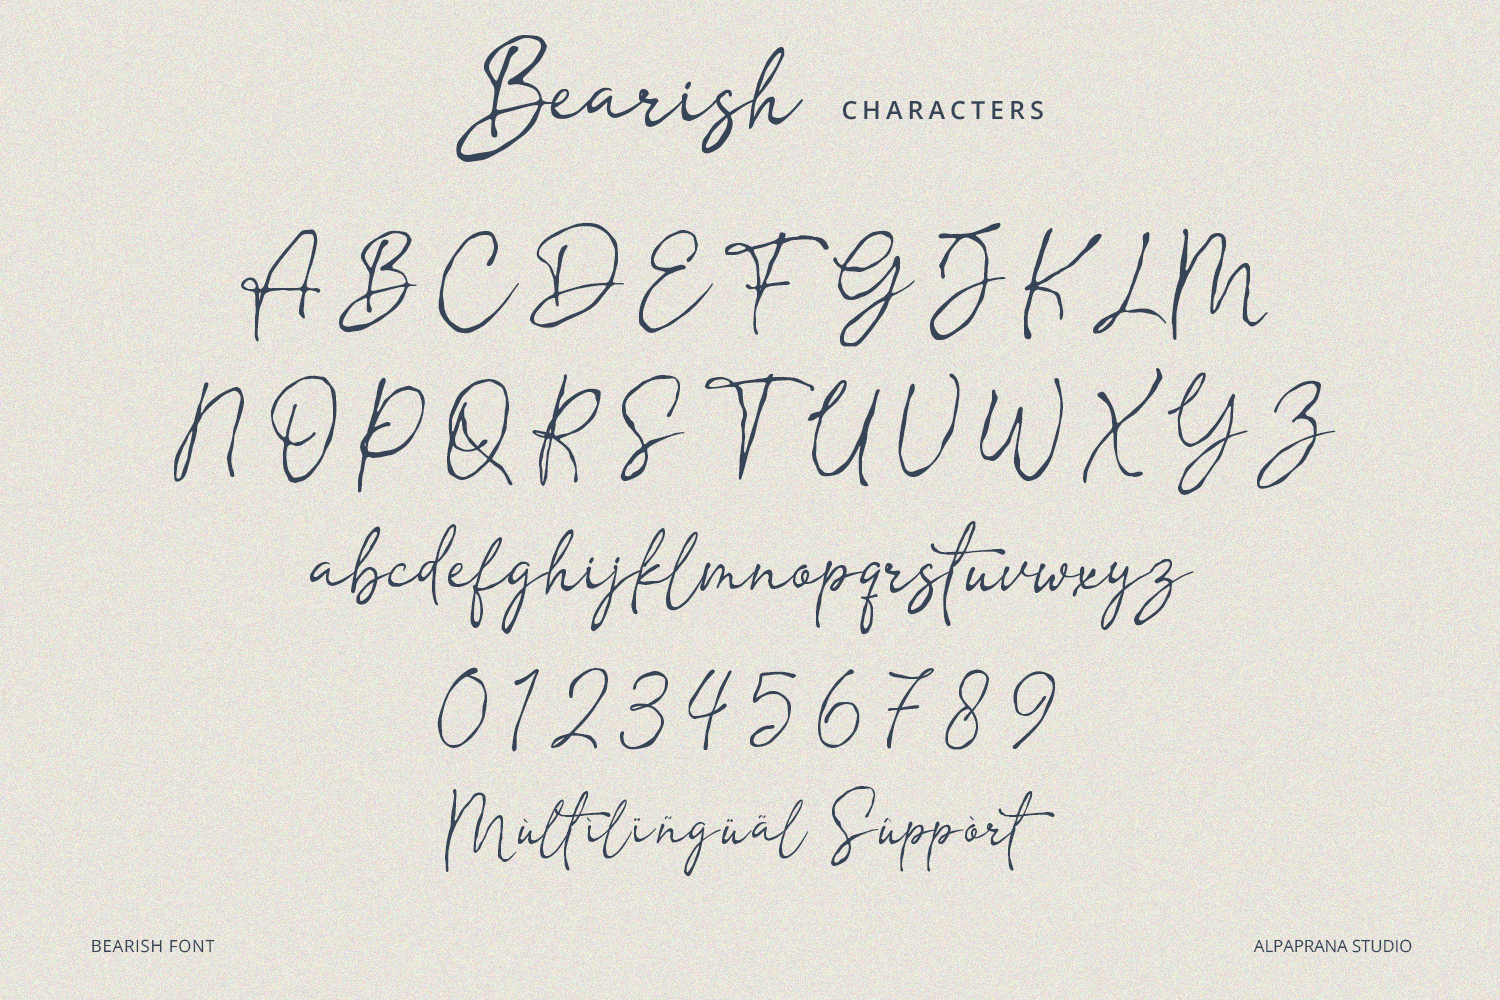 Bearish CHARACTERS
A B C D E F G J K L M
N O P Q R S T U V W X Y Z
abcdefghijklmnopqrstuvwxyz
0 1 2 3 4 5 6 7 8 9
Mùltìlïñgüãl Sûppòrt
BEARISH FONT
ALPAPRANA STUDIO